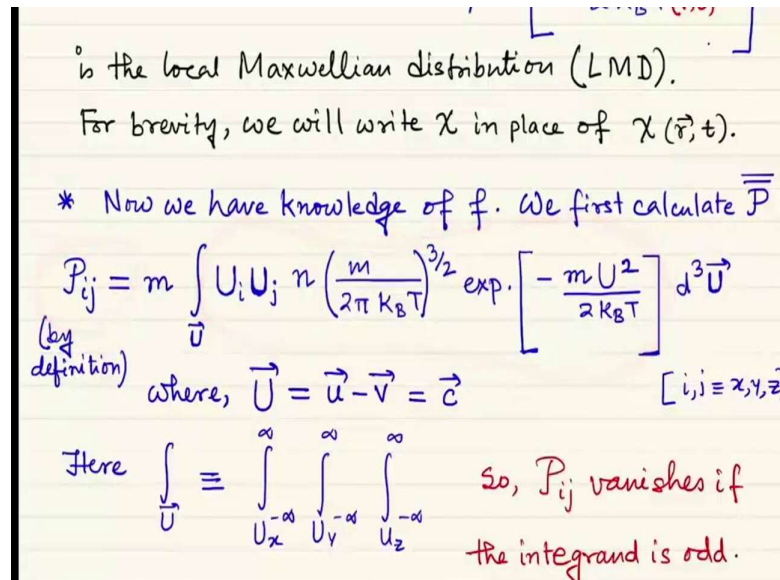 is the local Maxwellian distribution (LMD).
For brevity, we will write χ in place of χ(r⃗, t).
* Now we have knowledge of f. We first calculate P̿
Pij = m ∫U⃗ UiUj n (m / 2π KBT)^3/2 exp. [ - mU² / 2KBT ] d³U⃗
(by
definition)
where, U⃗ = u⃗ - v⃗ = c⃗ [i,j ≡ x,y,z
Here ∫U⃗ ≡ ∫Ux -∞ ∞ ∫Uy -∞ ∞ ∫Uz -∞ ∞ So, Pij vanishes if
the integrand is odd.